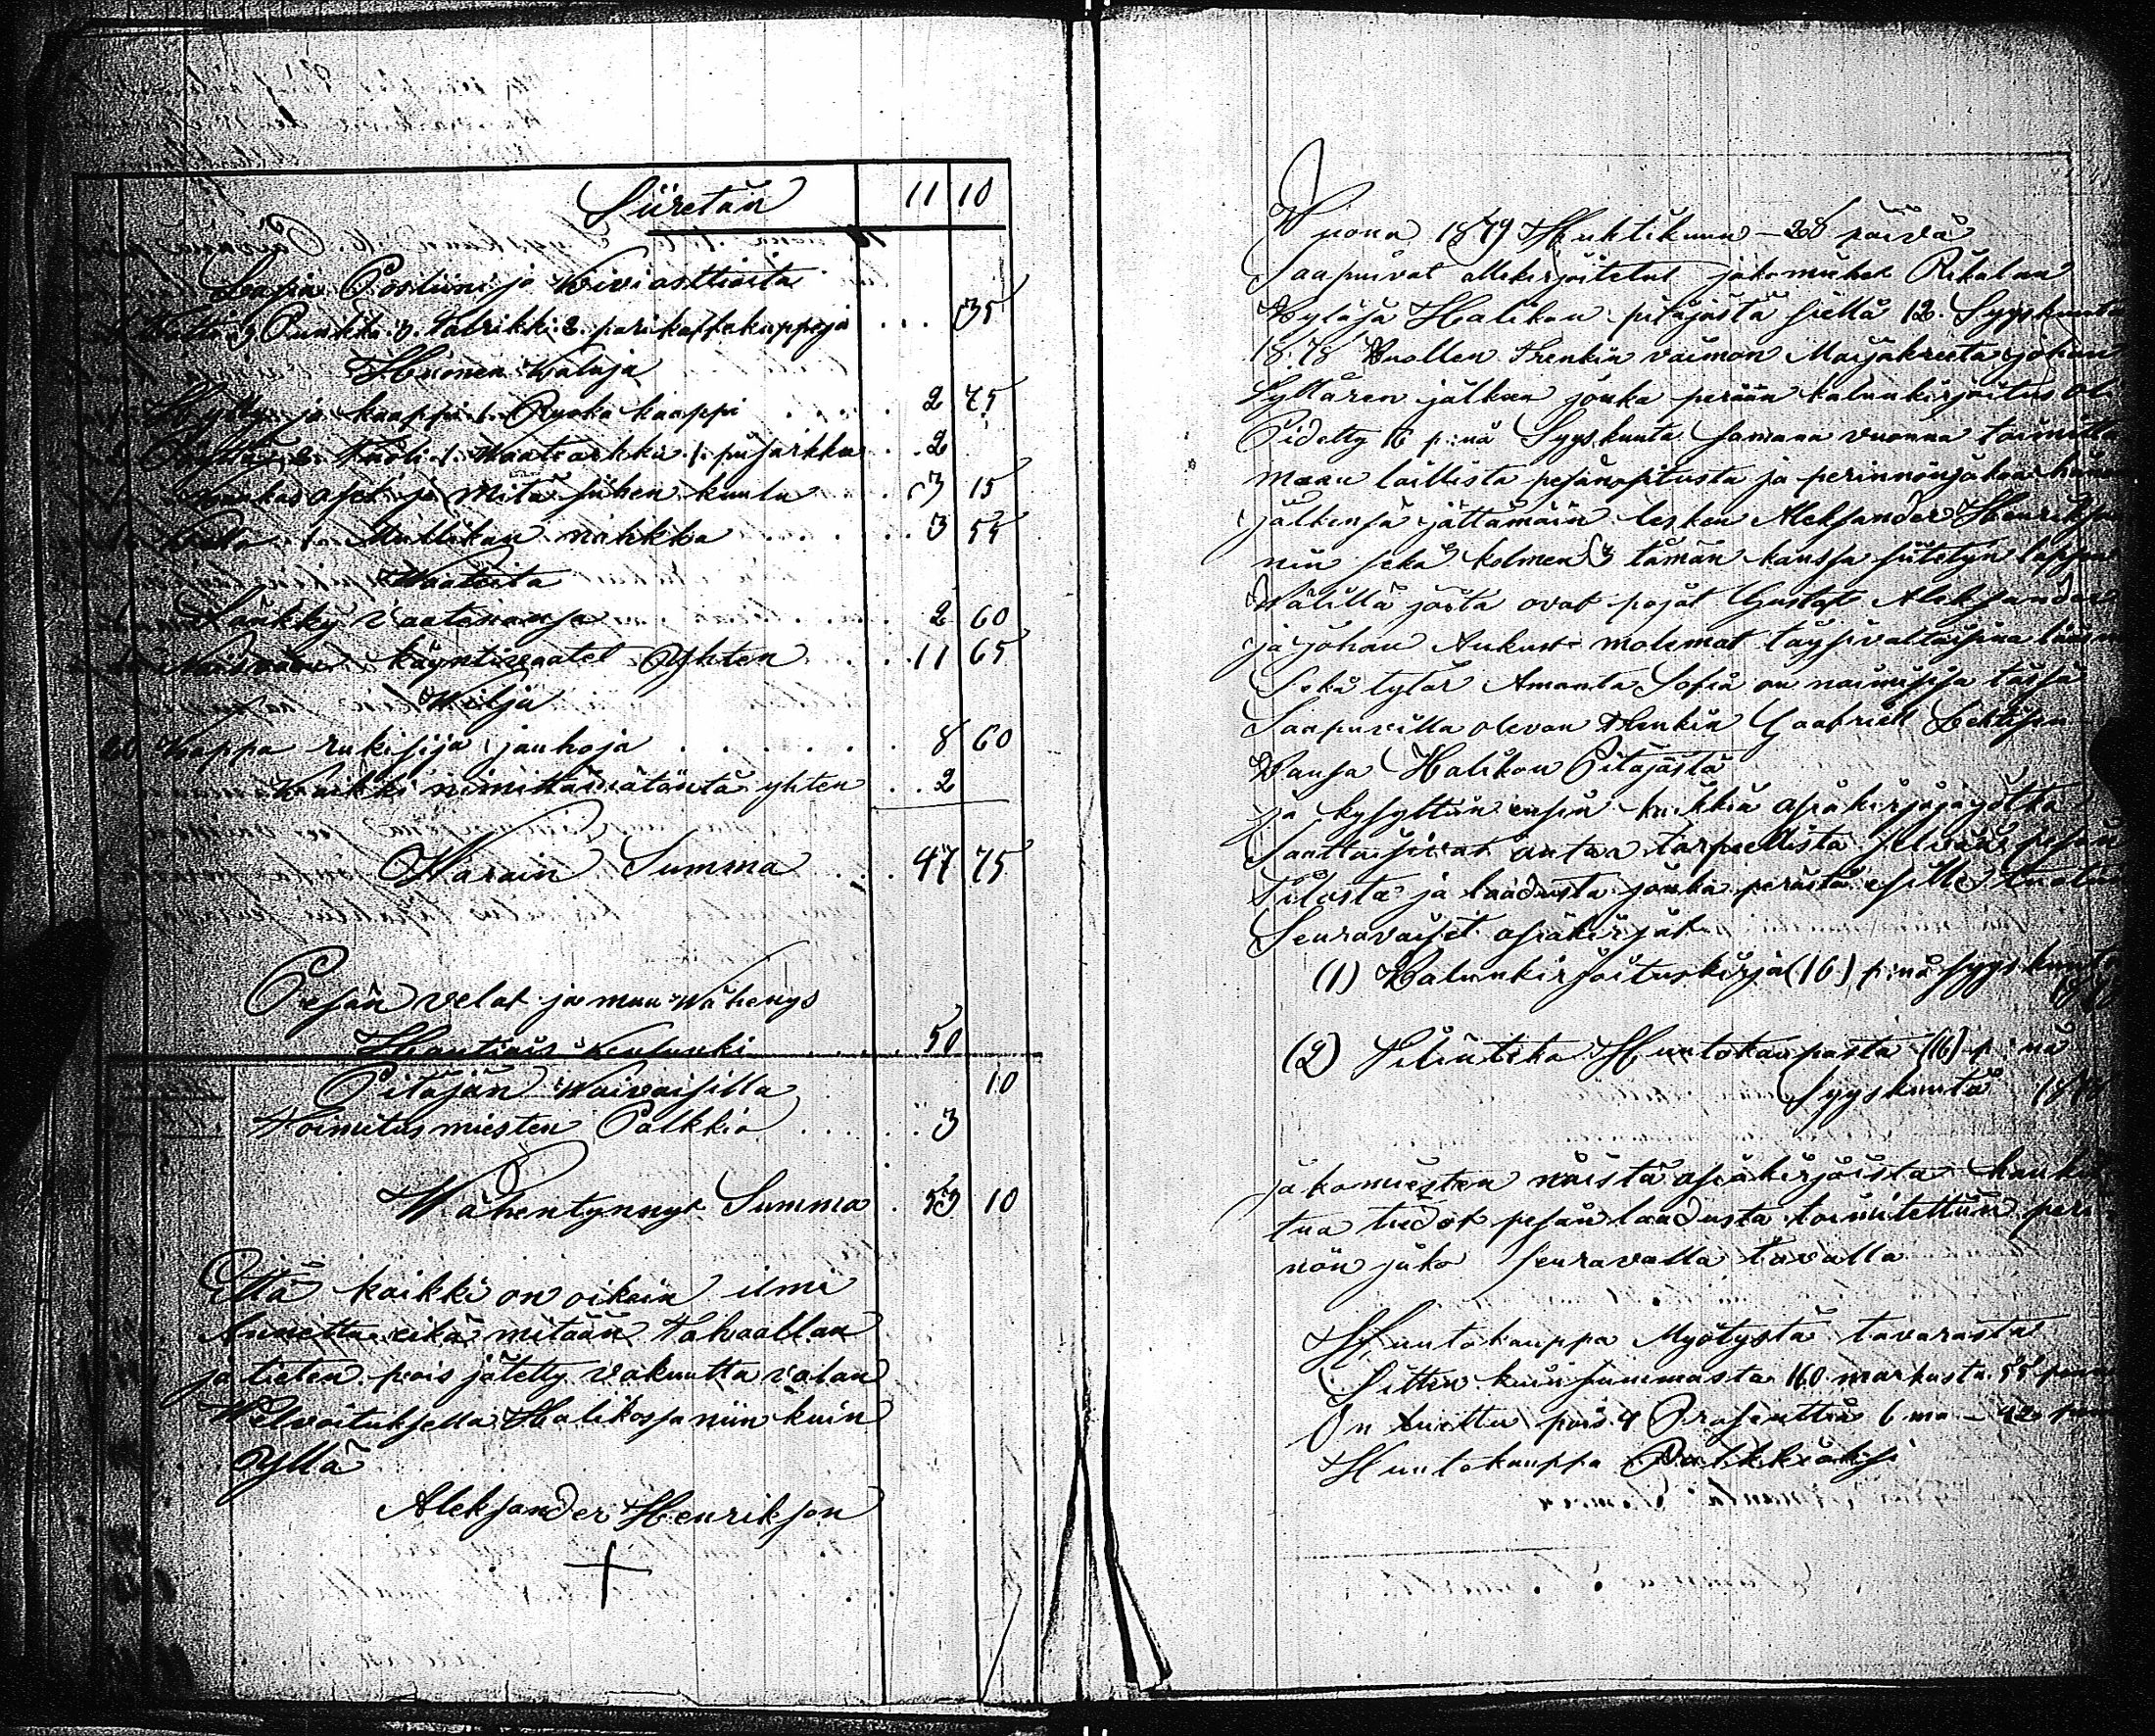 Siiretän 11 10
Lasia Posliini ja Kiviasttioita
3. Puukko 3. Tabrikki 2. pari kaffekuppeja . . . 35
Huonen kaluja
ja kaappi 1. Ruoka kaappi . . . . 2 75
Vaatearkku 1. . . 2
ja mitä siihen kuulu . . 3 15
1. Mullikan nahkka . . . . 3 55
Vaateita
Sänkky vaatenansa . . . . 2 60
käyntivaatet Yhten . . 11 65
Vilja
20 kappa rukisija jauhoja . . . . . . . 8 60
Kaikki nimittämätöntä yhten . . 2
Varain Summa . . . 47 75
Pesän velat ja muu vähenys
Hautiais . . . . . 50
Pitäjän Vaivaisilla 10
Toimitus miesten Palkkio . . . . . . 3
Vähentynnyt Summa . 53 10
Että kaikki on oikein ilmi
Annettu eikä mitään Tahaallaa
ja tieten pois jätetty vakuutta valan
Velvoituksella Halikossa niin kuin
Yllä
Aleksander Henrikson
+
Vuona 1879 Huhtikuun - 28 päivä
Saapuivat allekirjoitetut jakomiehet Rikalan
Kylässä Halikon pitäjästä siellä 12. Syyskuuta
1878 Kuollen Renkin vaimon Maijakreeta Johan
Tyttären jälken jonka perään kalunkirjoitus oli
Pidetty 16 p:nä Syyskuuta samana vuonna toimitta
maan laillista pesänositusta ja perinnönjakoa hänen
jälkensä jättämäin lesken Aleksander Henrikso
nin sekä kolmen 3 tämän kanssa siitetyn lapsen
Välillä joista ovat pojat Gustaf Aleksander
ja Johan Aukust molemat täysivaltaisina läsnä
Sekä tytär Amanta Sofia on naimisissa tässä
Saapuvilla olevan Renkin Gaabriell Lehtisen
Kansa Halikon Pitäjästä
ja kysyttiin ensin kaikkia asiakirjoja jotka
Saattaisivat antaa tarpeellista selvää pesän
Tilasta ja laadusta jonka perästä esille tuotiin
Seuravaiset asiakirjat
(1) Kalunkirjoituskirja (16) p:nä syyskuuta
(2) Huutokaupasta (16) p:nä
Syyskuuta 1878
jakomiesten näistä asiakirjoista hankit
tua tiedot pesän laadusta toimitettiin perin
nön jako seuravalla tavalla
Huutokauppa Myötystä tavarasta
Sitten kuin summasta 160 markasta 55
On luettu pois 4 Prosenttia 6 ma - 42
Huutokauppa